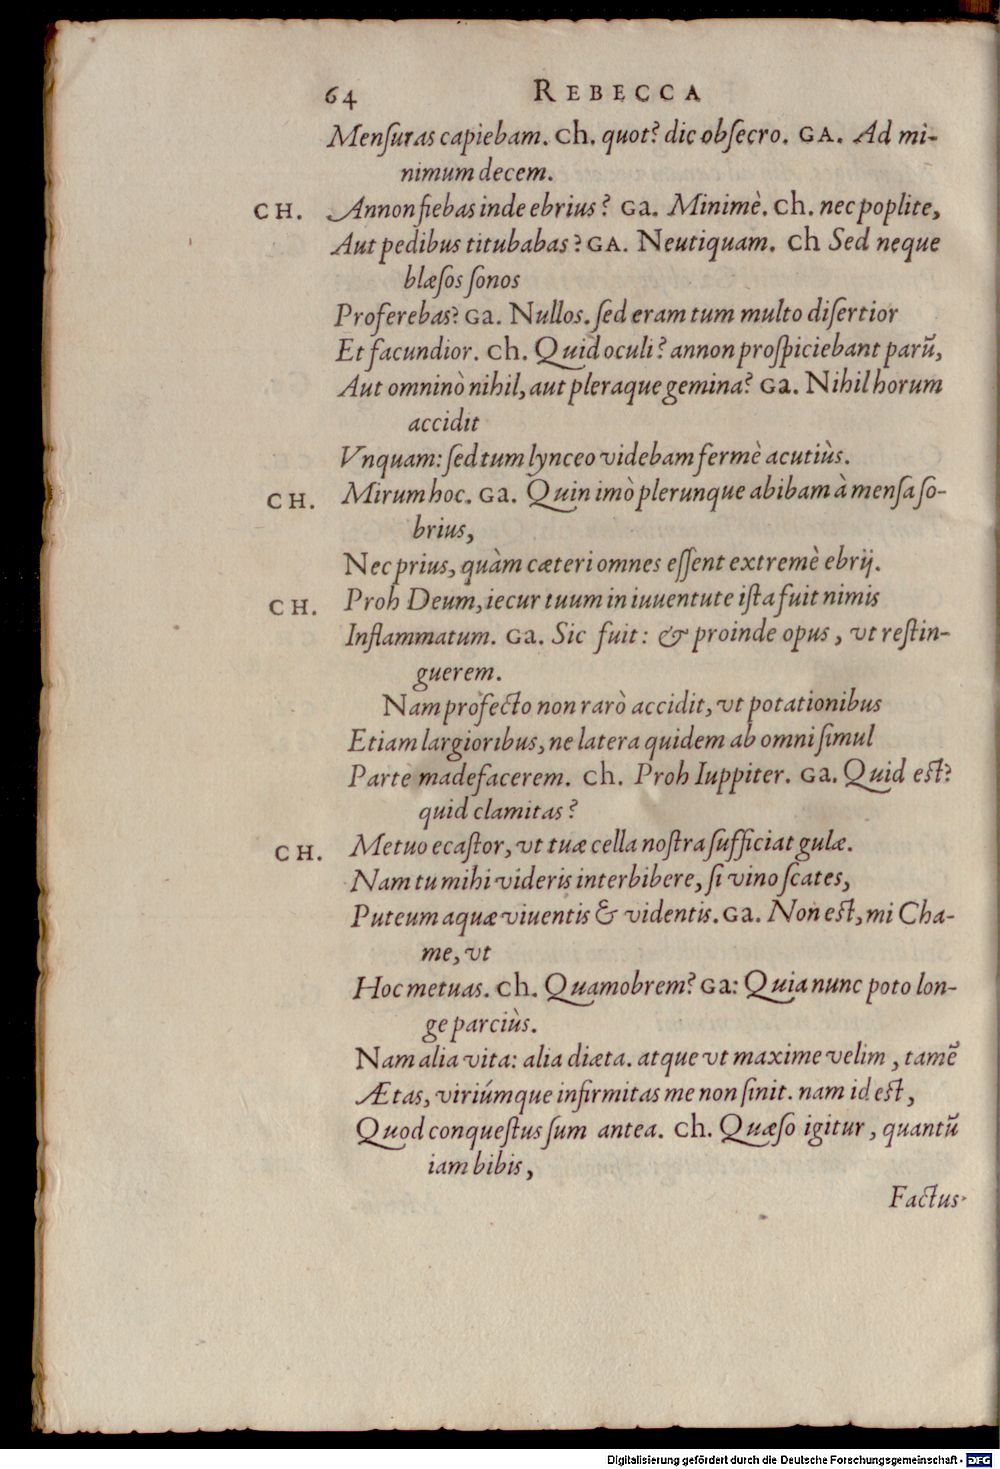 64 REBECCA
Menſuras capiebam. Ch. quot? dic obſecro. GA. Ad mi-
nimum decem.
CH. Annon fiebas inde ebrius? Ga. Minimè. Ch. nec poplite,
Aut pedibus titubabas? GA. Neutiquam. Ch Sed neque
blæſos ſonos
Proferebas? Ga. Nullos. ſed eram tum multo diſertior
Et facundior. Ch. Quid oculi? annon proſpiciebant parũ,
Aut omninò nihil, aut pleraque gemina? Ga. Nihil horum
accidit
Vnquam: ſed tum lynceo videbam fermè acutiùs.
CH. Mirum hoc. Ga. Quin imò plerunque abibam à menſa ſo-
brius,
Nec prius, quàm cæteri omnes eſſent extremè ebrij.
CH. Proh Deum, iecur tuum in iuuentute iſta fuit nimis
Inflammatum. Ga. Sic fuit: & proinde opus, vt reſtin-
guerem.
Nam profecto non rarò accidit, vt potationibus
Etiam largioribus, ne latera quidem ab omni ſimul
Parte madefacerem. Ch. Proh Iuppiter. Ga. Quid eſt?
quid clamitas?
CH. Metuo ecaſtor, vt tuæ cella noſtra ſufficiat gulæ.
Nam tu mihi videris interbibere, ſi vino ſcates,
Puteum aquæ viuentis & videntis. Ga. Non eſt, mi Cha-
me, vt
Hoc metuas. Ch. Quamobrem? Ga: Quia nunc poto lon-
ge parciùs.
Nam alia vita: alia diæta. atque vt maxime velim, tamẽ
Ætas, viriúmque infirmitas me non ſinit. nam id eſt,
Quod conqueſtus ſum antea. Ch. Quæſo igitur, quantũ
iam bibis,
Factus
Digitalisierung gefördert durch die Deutsche Forschungsgemeinschaft - DFG